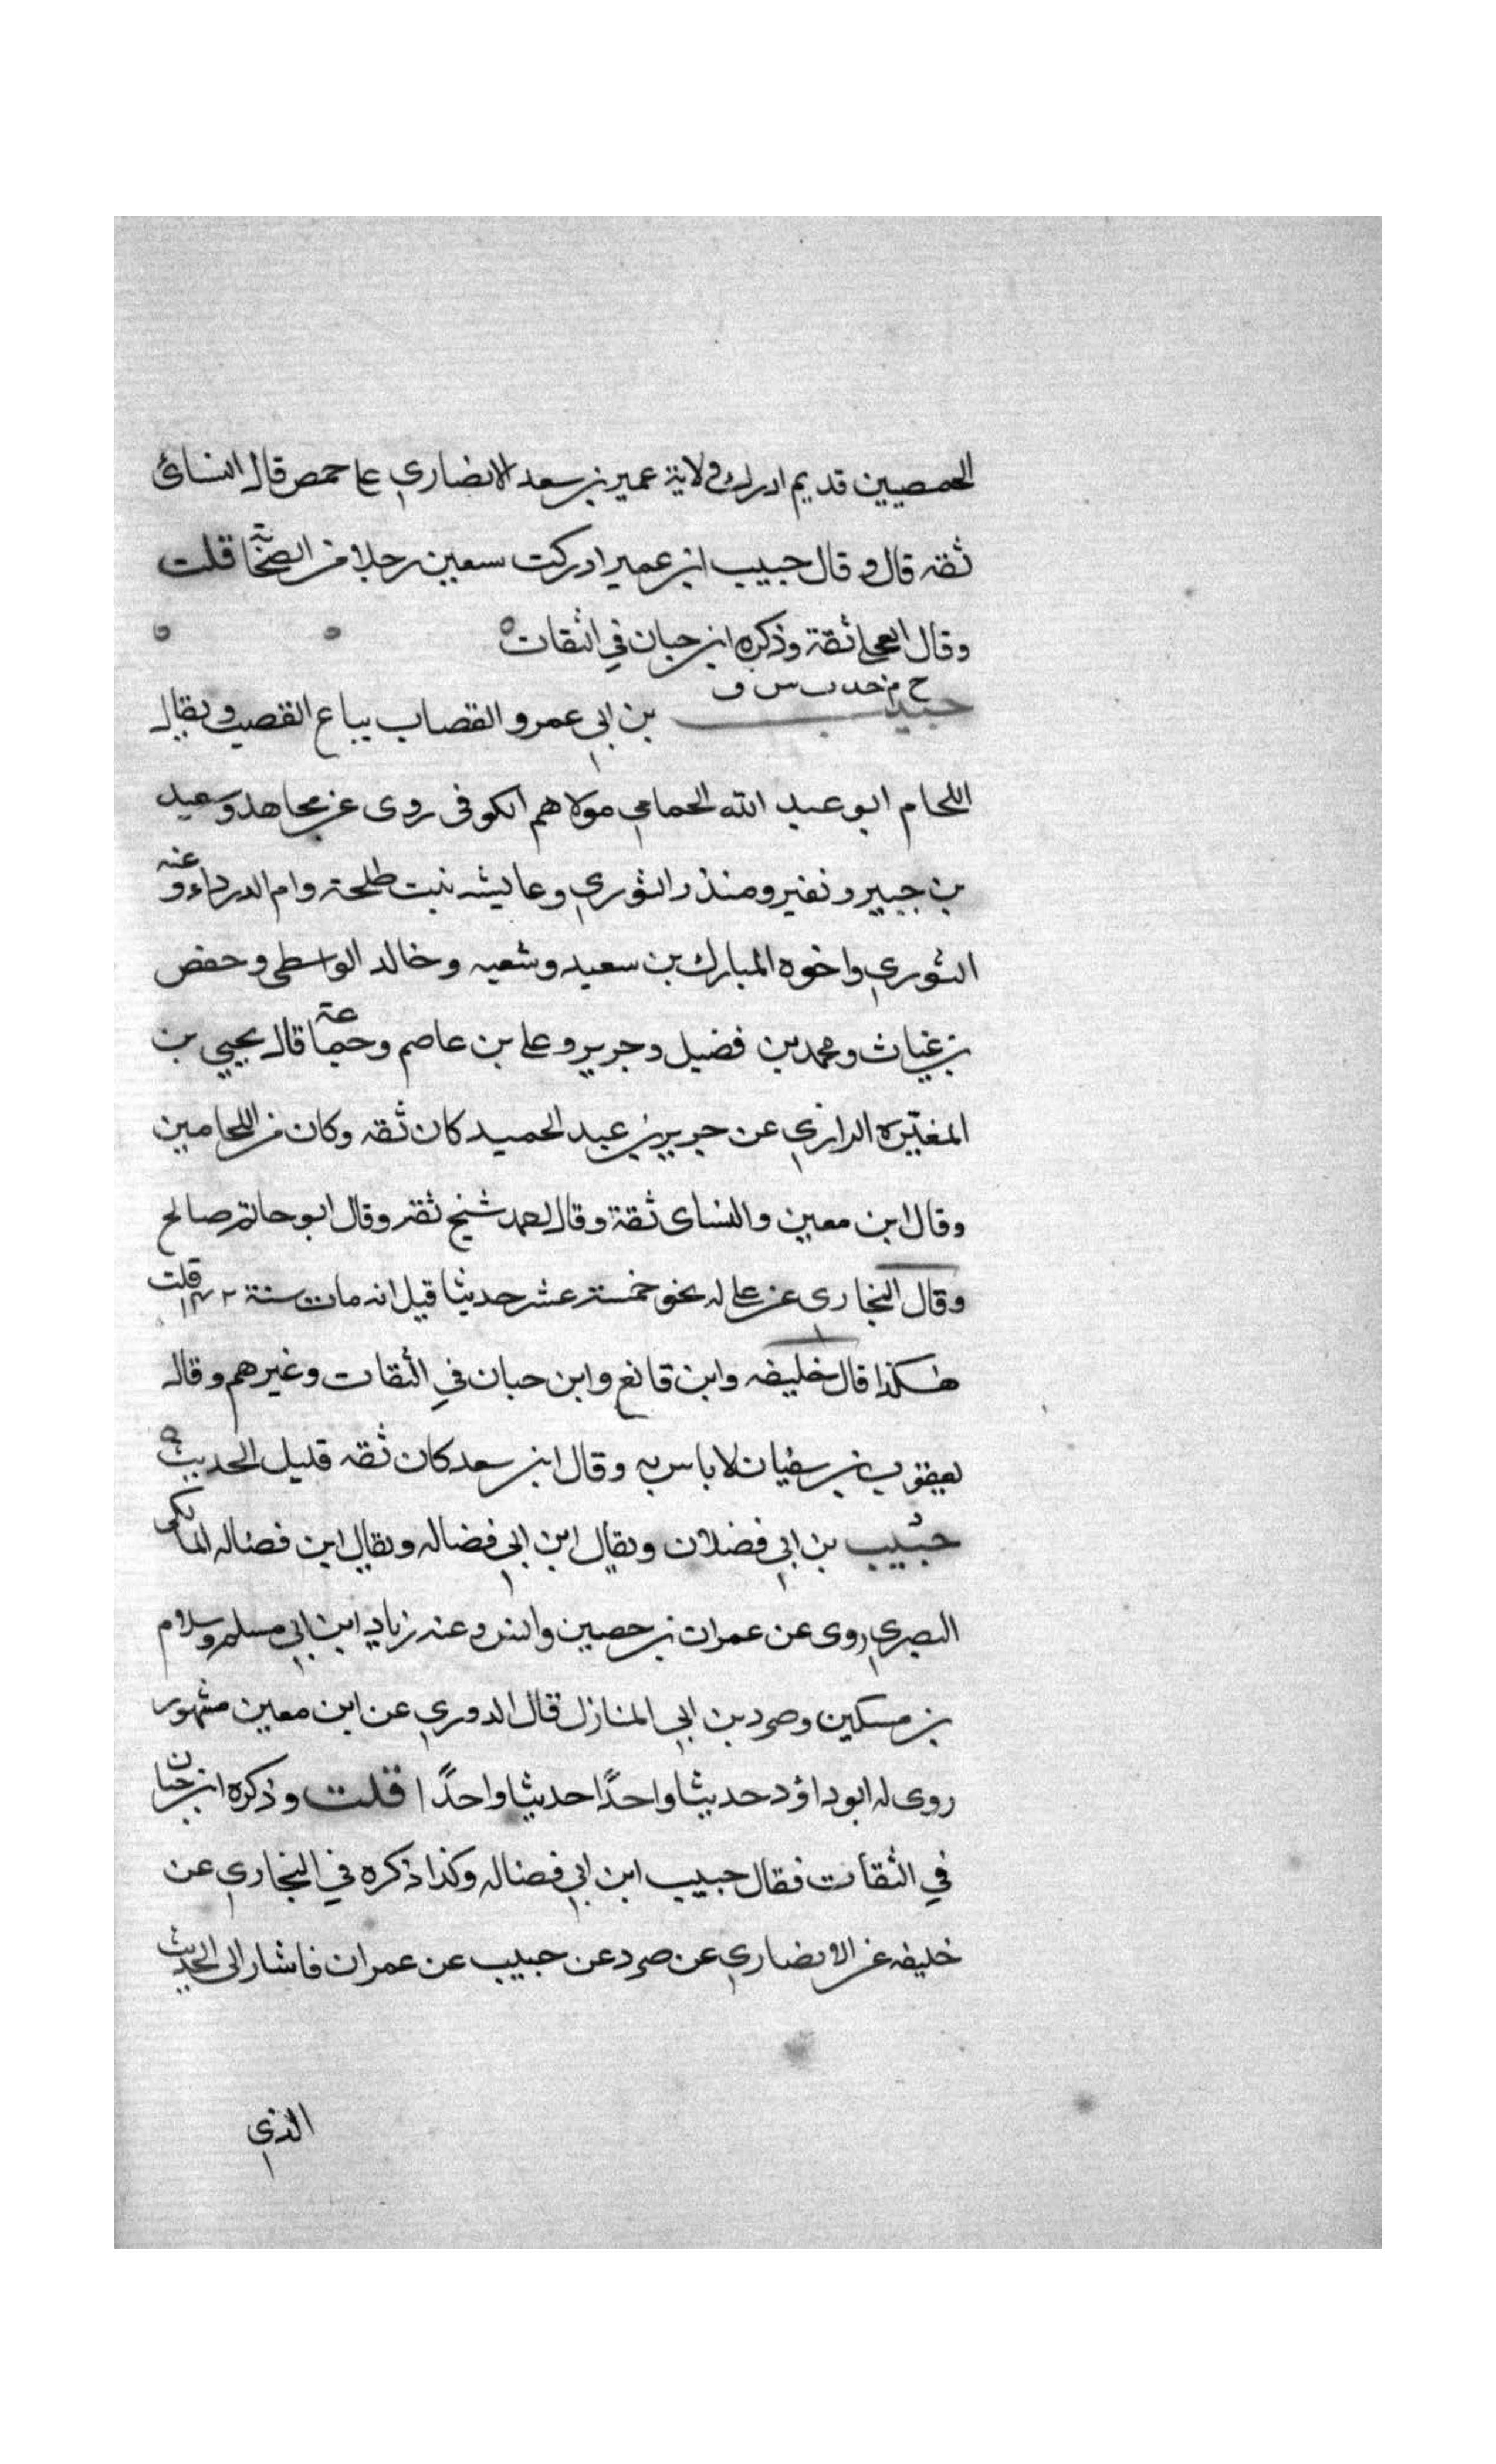 الحمصيين قديم ادرك ولاية عمير بن سعد الانصاري على حمص قال النسائى
ثقه قال وقال حبيب ابن عمير ادركت سبعين رجلا من الصحابة قلت
وقال العجلي ثقة وذكره ابن حبان في الثقات
خ م خد ت س ق
حبيب بن ابي عمرو القصاب بياع القصب ويقال
اللحام ابو عبد الله الحمامي مولاهم الكوفى روى عن مجاهد وسعيد
بن جبير ونفير ومنذر الثوري وعايشه بنت طلحة وام الدرداء وعنه
الثوري واخوه المبارك بن سعيد وشعبه وخالد الواسطى وحفص
بن غياث ومحمد بن فضيل وجرير وعلى بن عاصم وجماعة قال يحيى بن
المغيره الرازي عن جرير بن عبد الحميد كان ثقه وكان من اللحامين
وقال ابن معين والنساى ثقة وقال احمد شيخ ثقة وقال ابو حاتم صالح
وقال البخارى عن على له نحو خمسة عشر حديثا قيل انه مات سنة ١٤٢ قلت
هكذا قال خليفه وابن قانع وابن حبان في الثقات وغيرهم وقال
يعقوب بن سفيان لا باس به وقال ابن سعد كان ثقه قليل الحديث
د
حبيب بن ابي فضلان ويقال ابن ابي فضاله ويقال ابن فضاله المالكى
البصري روى عن عمران بن حصين وانس وعنه زياد ابن ابي مسلم وسلام
بن مسكين وصرد بن ابي المنازل قال الدوري عن ابن معين مشهور
روى له ابو داؤد حديثا واحدًا حديثا واحدًا قلت وذكره ابن حبان
في الثقات فقال حبيب ابن ابي فضاله وكذا ذكره في البخاري عن
خليفه عن الانصاري عن صرد عن حبيب عن عمران فاشار الى الحديث
الذي